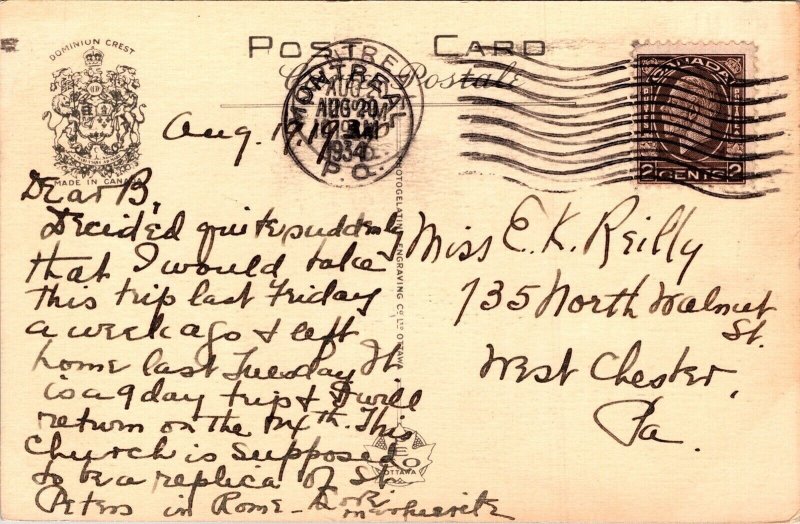 DOMINION CREST
MADE IN CAN
POST CARD
Carte Postale
MONTREAL
AUG 20
1934
P.Q.
CANADA
2 CENTS 2
Aug. 19, 19
Dear B,
Decided quite suddenly
that I would take
this trip last Friday
a week ago & left
home last Tuesday. It
is a 9 day trip & I will
return on the th. This
Church is supposed
to be a replica of St.
Peters in Rome - Love
Marguerite
PHOTOGELATINE ENGRAVING CO. LTD. OTTAWA
OTTAWA
Miss E. K. Reilly
735 North Walnut
St.
West Chester,
Pa.